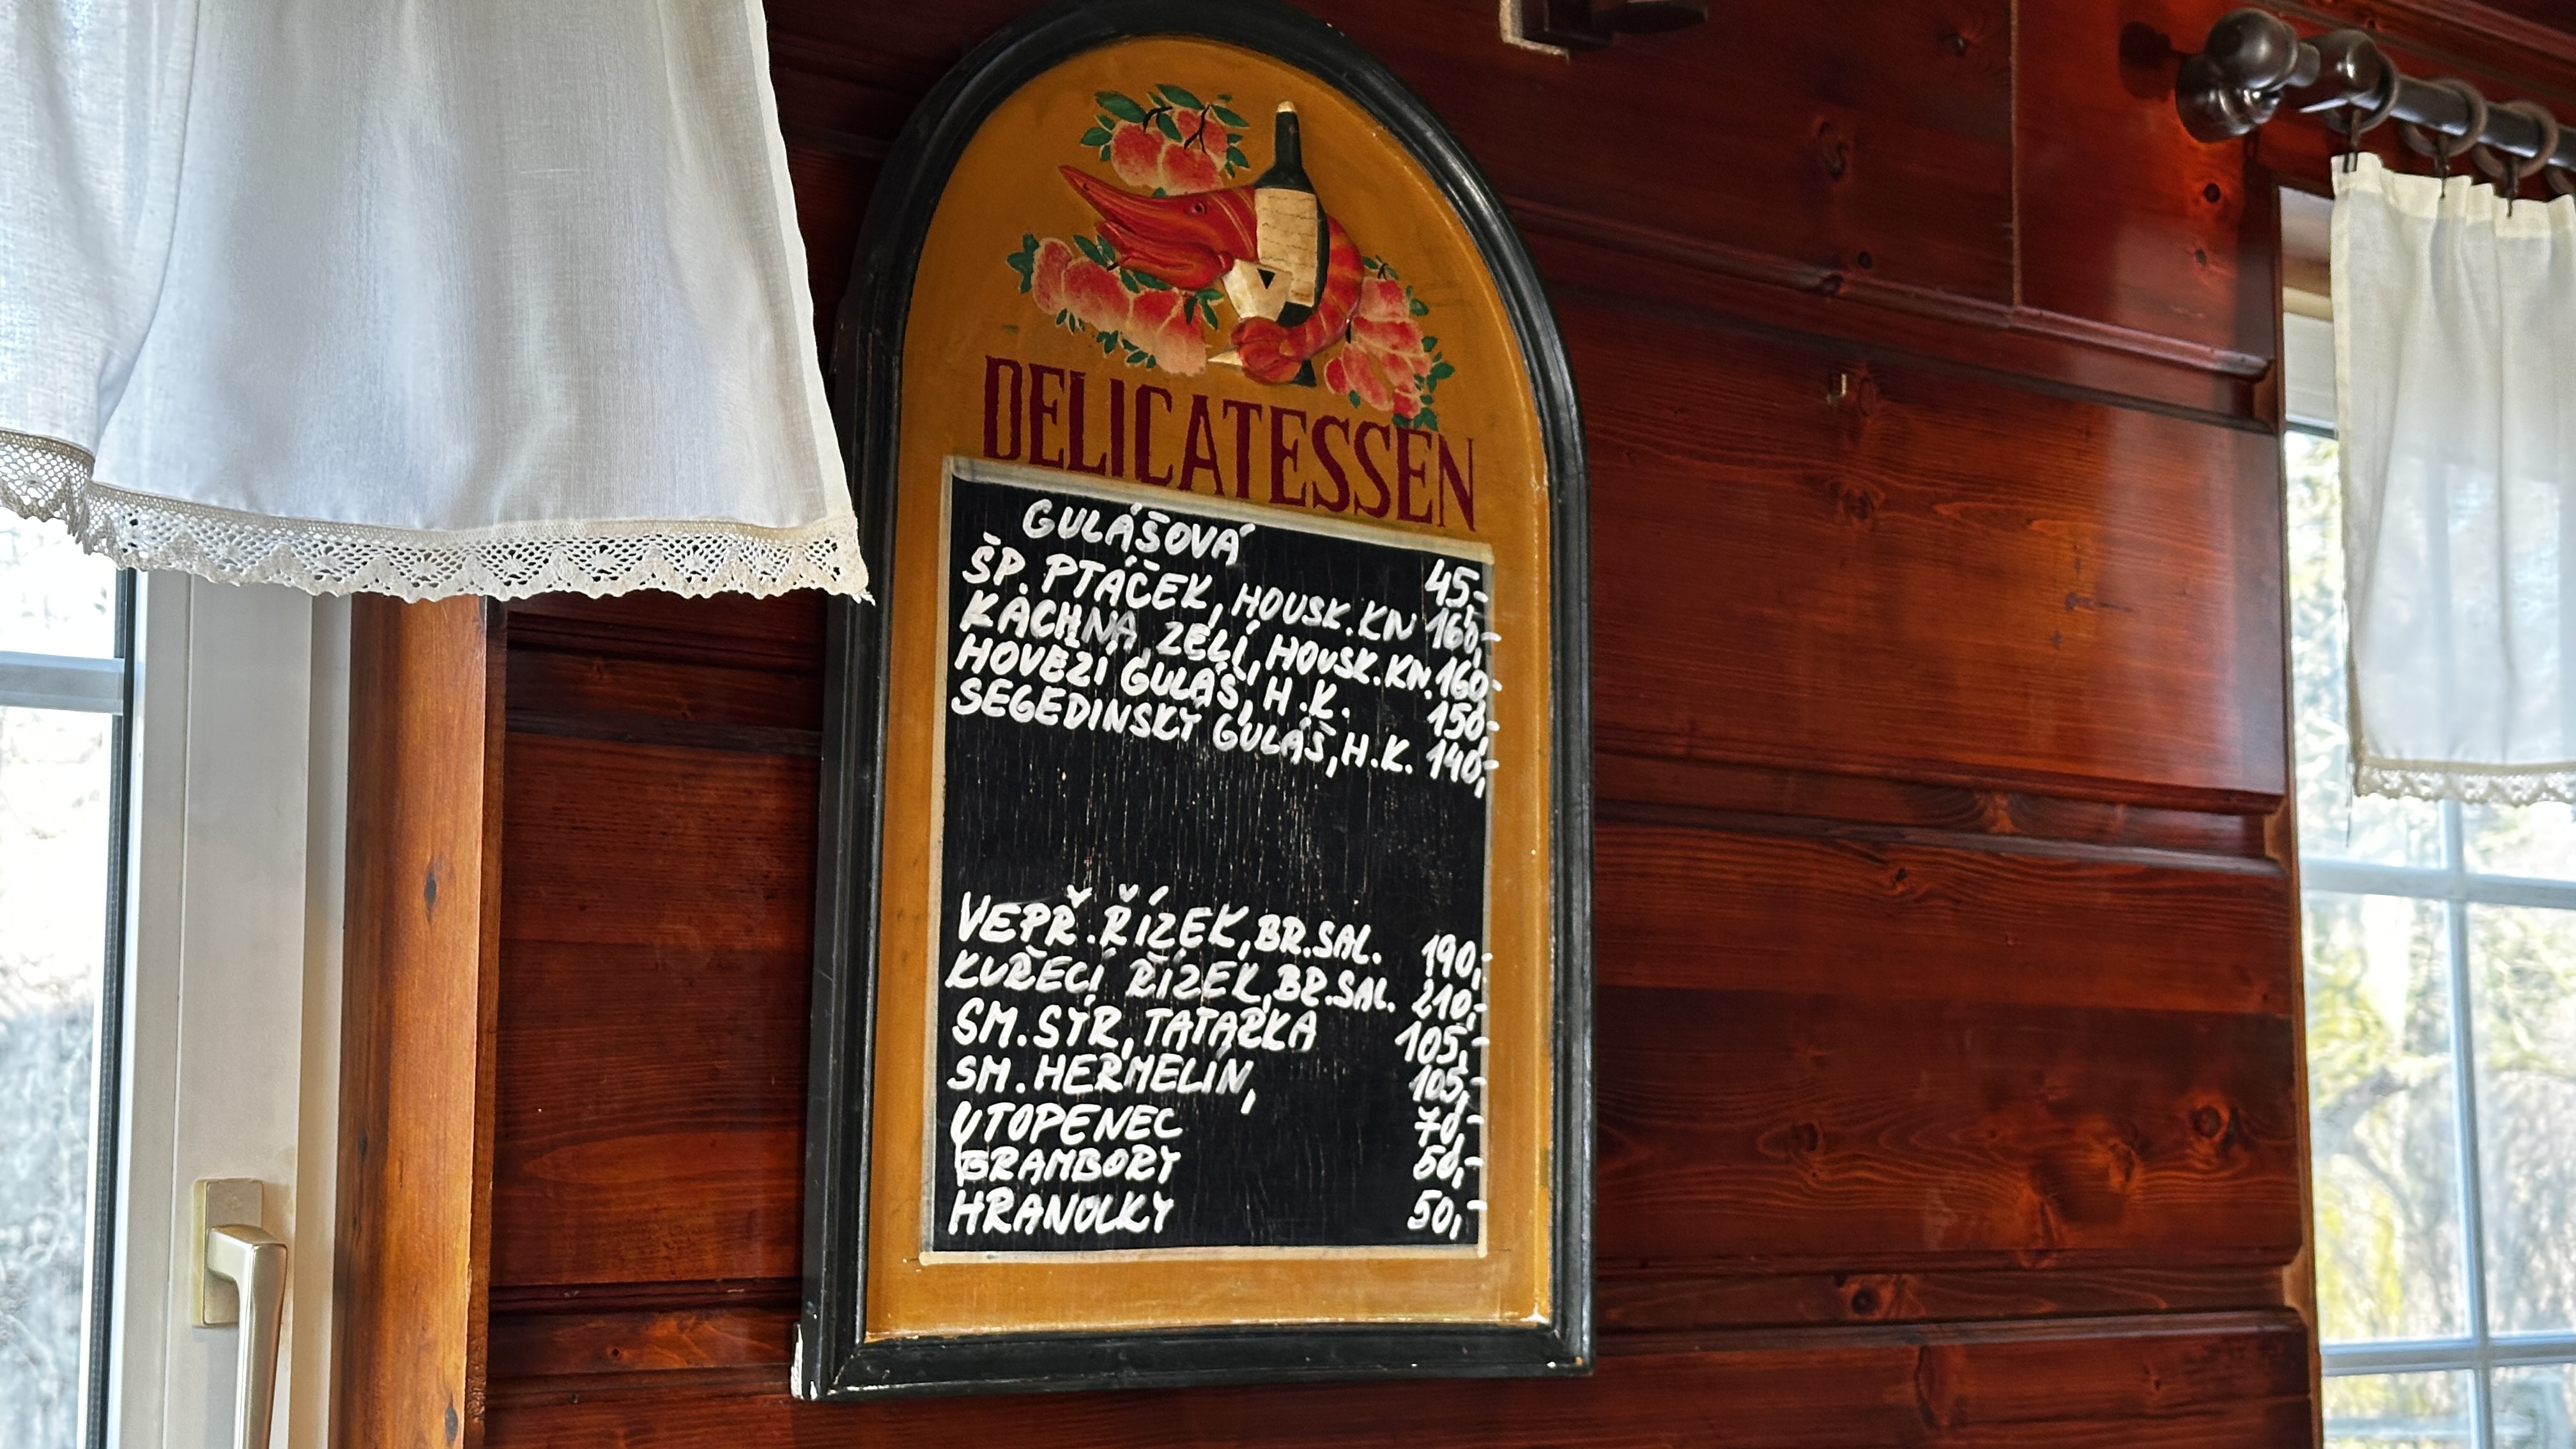 DELICATESSEN
GULÁŠOVÁ 45,-
ŠP. PTÁČEK, HOUSK.KN 160,-
KACHNA, ZELÍ, HOUSK.KN. 160,-
HOVĚZÍ GULÁŠ, H.K. 150,-
SEGEDÍNSKÝ GULÁŠ, H.K. 140,-
VEPŘ. ŘÍZEK, BR.SAL. 190,-
KUŘECÍ ŘÍZEK, BR.SAL. 210,-
SM. SÝR, TATARKA 105,-
SM. HERMELÍN, 105,-
UTOPENEC 70,-
BRAMBORY 50,-
HRANOLKY 50,-